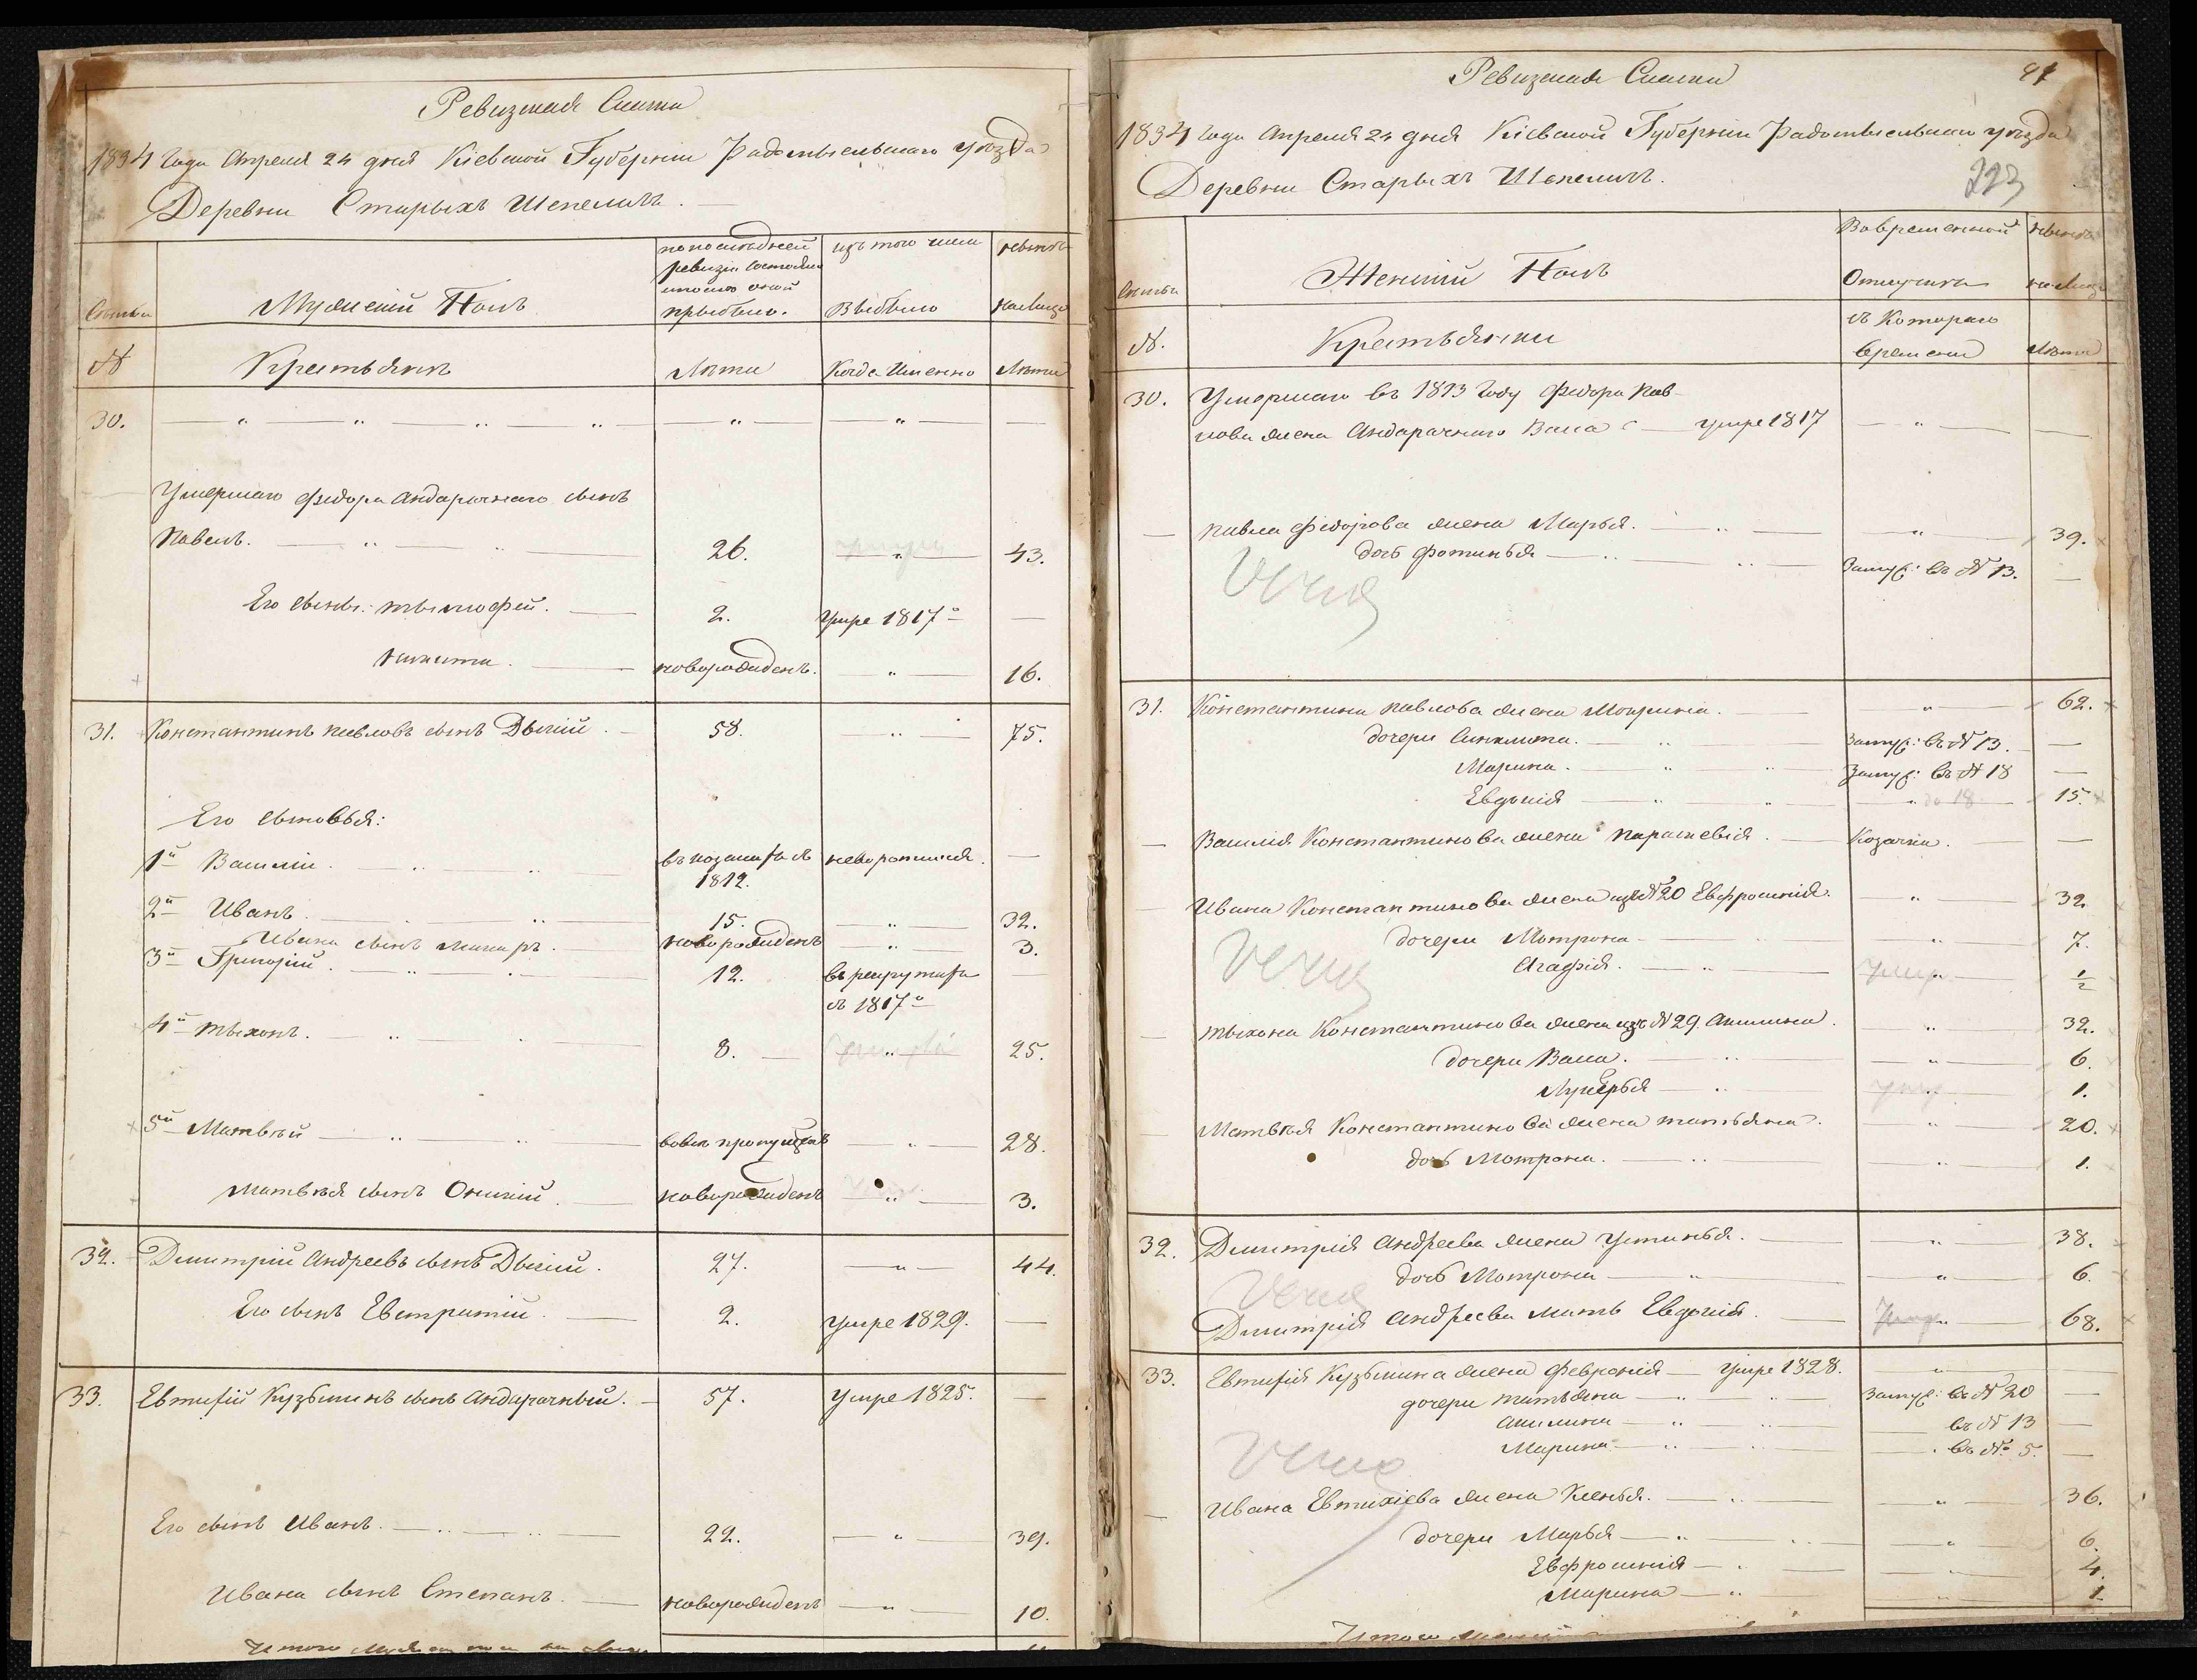 Ревизская Сказка
1834 года Апреля 24 дня Кіевской Губерніи Радомысльскаго уѣзда
Деревни Старыхъ Шепеличъ.
Мужескій Полъ
по послѣдней ревизіи состояло и после оной прыбыло.
изъ того числа Выбыло
нынѣ на лицо
№
Крестьянъ
Лѣта
Когда Именно
Лѣта
30.
Умершаго Федора Андарачнаго сынъ
Павелъ. 26. 43.
Его сыны: Тымофей. 2. Умре 1817 го
Никита. новорожденъ. 16.
31. Константинъ Павловъ сынъ Дыкій. 58. 75.
Его сыновья:
1й Василій. въ козакахъ 1812. неворотился.
2й Иванъ. 15. 32.
Ивана сынъ Макаръ. новорожденъ 3.
3й Григорій. 12. въ рекрутахъ съ 1817 го
4й Тыхонъ. 8. 25.
5й Матвѣй пропущенъ 28.
Матвѣя сынъ Онискій новорожденъ 3.
32. Дмитрій Андреевъ сынъ Дыкій. 27. 44.
Его сынъ Евстратій. 2. умре 1829.
33. Евтихій Кузьминъ сынъ Андарачный. 57. умре 1825.
Его сынъ Иванъ. 22. 39.
Ивана сынъ Степанъ. новорожденъ 10.
Итого
Ревизская Сказка
1834 года Апреля 24 дня Кіевской Губерніи Радомысльскаго уѣзда
Деревни Старыхъ Шепеличъ.
223
Женскій Полъ
Во временной Отлучкѣ
нынѣ на лицо
№.
Крестьянки
съ Котораго времени
Лѣта
30. Умершаго въ 1813 году Федора Пав-
лова жена Андарачнаго Васса умре 1817
Павла Федорова жена Марья. 39.
дочь Фотинья Замуж: въ № 13.
Verte
31. Константина Павлова жена Мокрина. 62.
дочери Синклита. Замуж: въ № 13.
Марина. Замуж: въ № 18
Евдокія 15.
Василія Константинова жена Параскевія. Козачка.
Ивана Константинова жена изъ № 20 Евфросинія. 32.
дочери Мотрона 7.
Агафія. 1/2
Тыхона Константинова жена изъ № 29. Акилина. 32.
дочери Васса. 6.
Лукерья 1.
Матвѣя Константинова жена Татьяна. 20.
дочь Мотрона. 1.
32. Дмитрія Андреева жена Устинья. 38.
дочь Мотрона 6.
Дмитрія Андреева мать Евдокія. 68.
33. Евтихія Кузьмина жена Февронія умре 1828.
дочери Татьяна Замуж: въ № 20
Акилина въ № 13
Марина въ № 5.
Ивана Евтихіева жена Ксенья. 36.
дочери Марья 6.
Евфросинія 4.
Марина 1.
Итого